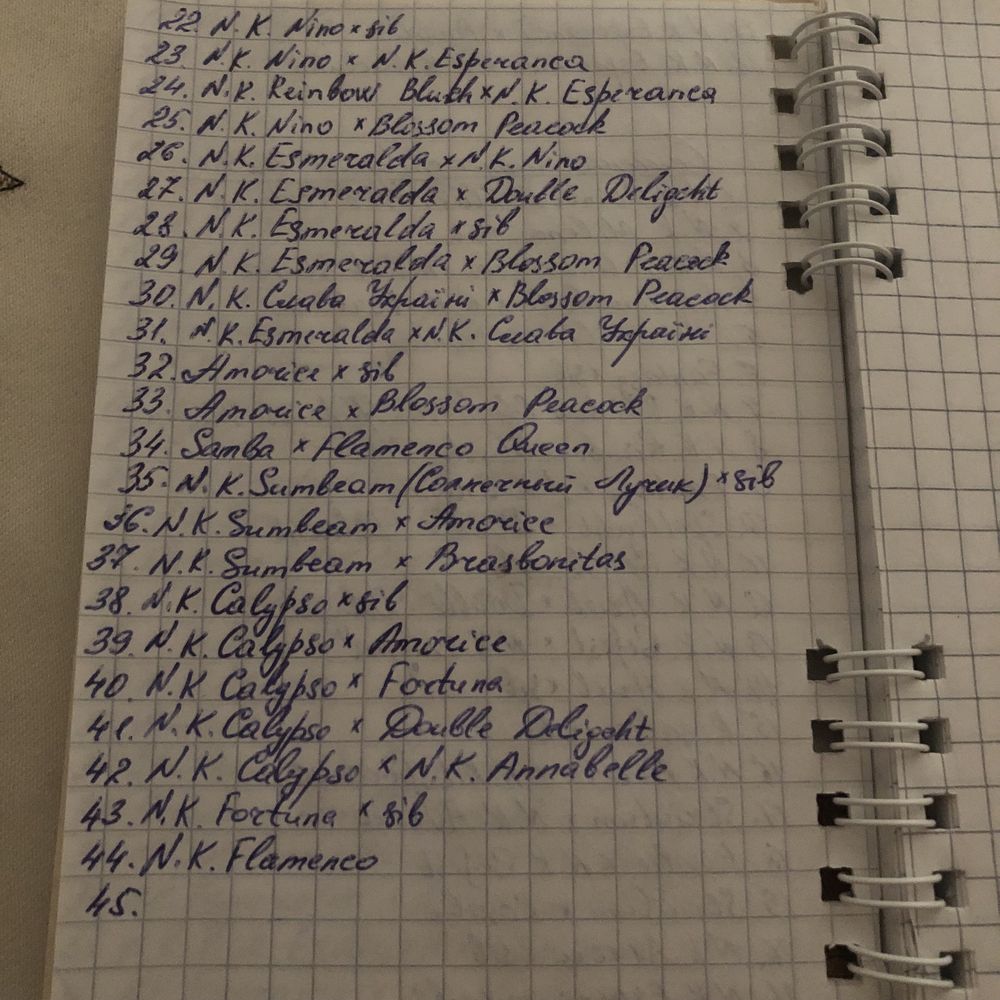 22. N.K. Nino × sib
23. N.K. Nino × N.K. Esperanca
24. N.K. Reinbow Blukh × N.K. Esperanca
25. N.K. Nino × Blossom Peacock
26. N.K. Esmeralda × N.K. Nino
27. N.K. Esmeralda × Double Deligcht
28. N.K. Esmeralda × sib
29 N.K. Esmeralda × Blossom Peacock
30. N.K. Слава Україні × Blossom Peacock
31. N.K. Esmeralda × N.K. Слава Україні
32. Amorice × sib
33. Amorice × Blossom Peacock
34. Samba × Flamenco Queen
35. N.K. Sumbeam (Солнечный Лучик) × sib
36. N.K. Sumbeam × Amorice
37. N.K. Sumbeam × Brasbonitas
38. N.K. Calypso × sib
39. N.K. Calypso × Amorice
40. N.K Calypso × Fortuna
41. N.K. Calypso × Double Deligcht
42. N.K. Calypso × N.K. Annabelle
43. N.K. Fortuna × sib
44. N.K. Flamenco
45.